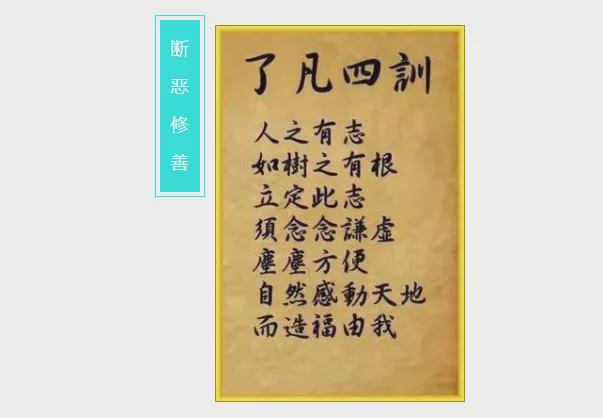 断恶修善
了凡四訓
人之有志
如樹之有根
立定此志
須念念謙虛
塵塵方便
自然感動天地
而造福由我